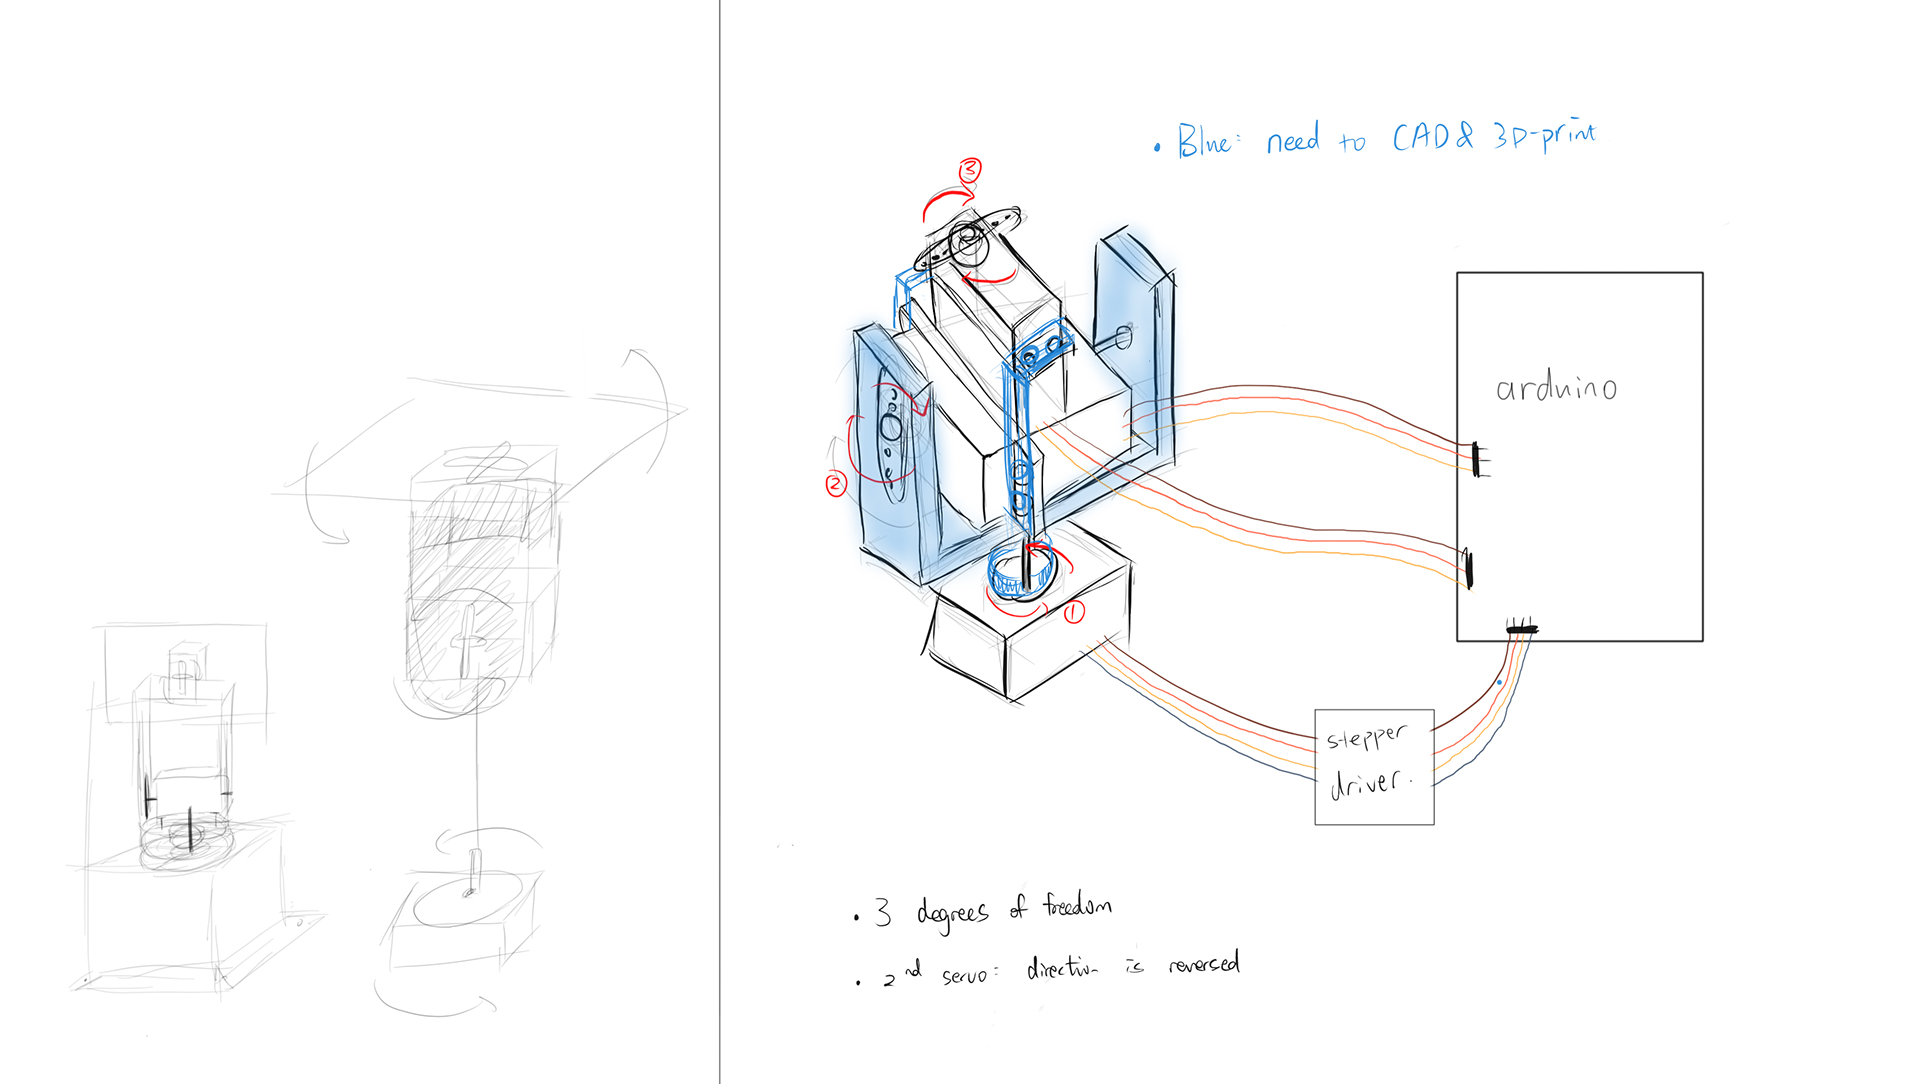 • Blue: need to CAD & 3D-print
③
arduino
②
①
stepper
driver.
• 3 degrees of freedom
• 2nd servo: direction is reversed